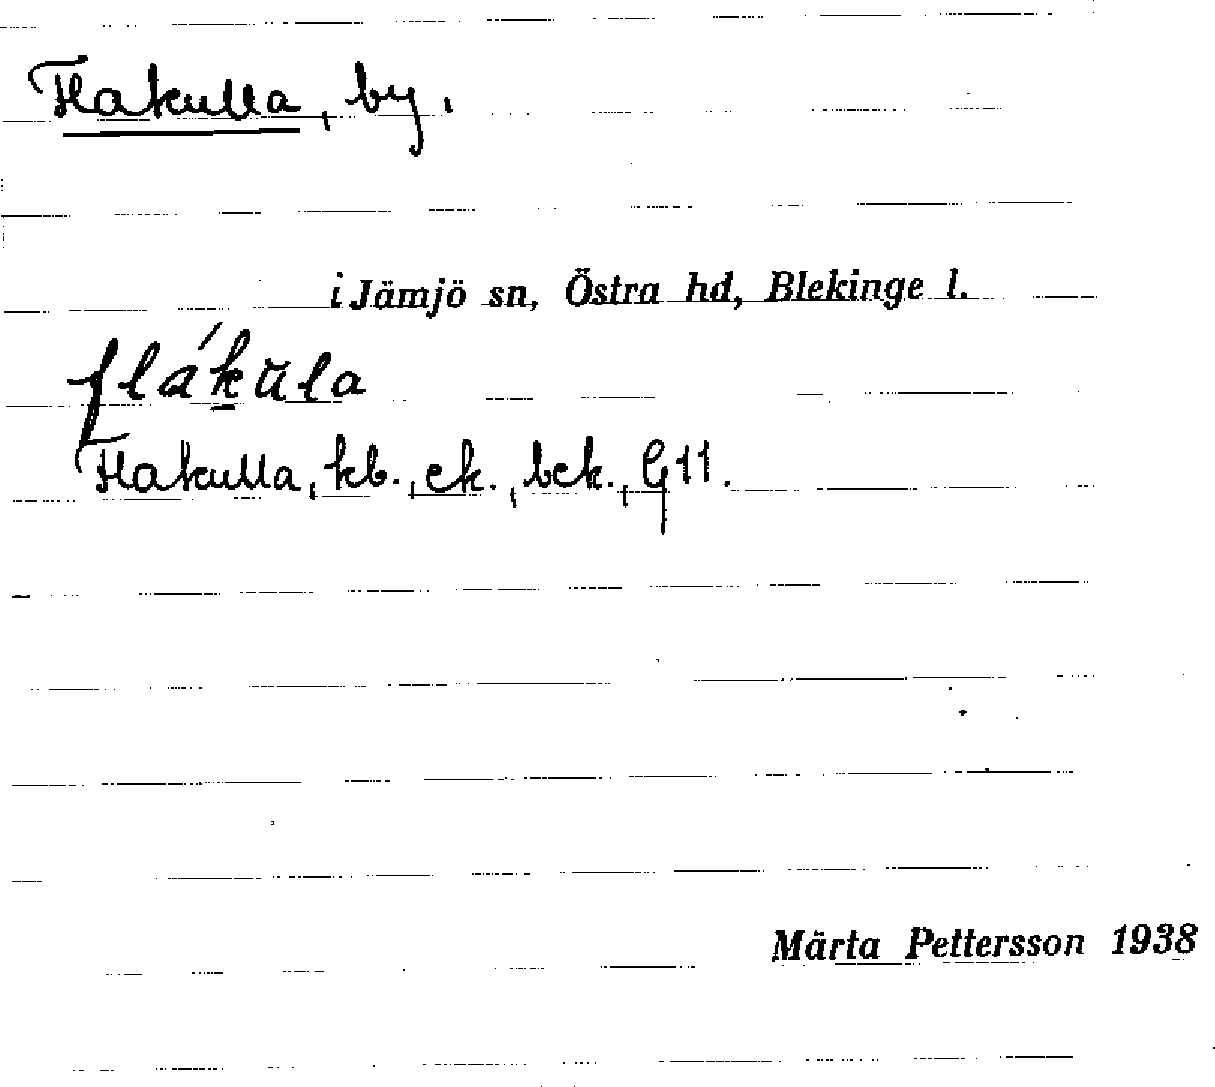 Flakulla, by.
i Jämjö sn, Östra hd, Blekinge l.
flák̲ŭla
Flakulla, kb., ek., bck., G11.
Märta Pettersson 1938